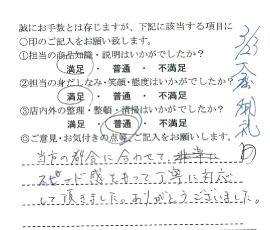 誠にお手数とは存じますが、下記に該当する項目に
〇印のご記入をお願い致します。
①担当の商品知識・説明はいかがでしたか？
満足・普通・不満足
②担当の身だしなみ・笑顔・態度はいかがでしたか？
満足・普通・不満足
③店内外の整理・整頓・清掃はいかがでしたか？
満足・普通・不満足
◎ご意見・お気付きの点等、ご記入をお願いします。
当方の都合に合わせて、非常に
スピード感をもって丁寧に対応
して頂きました。ありがとうございました。